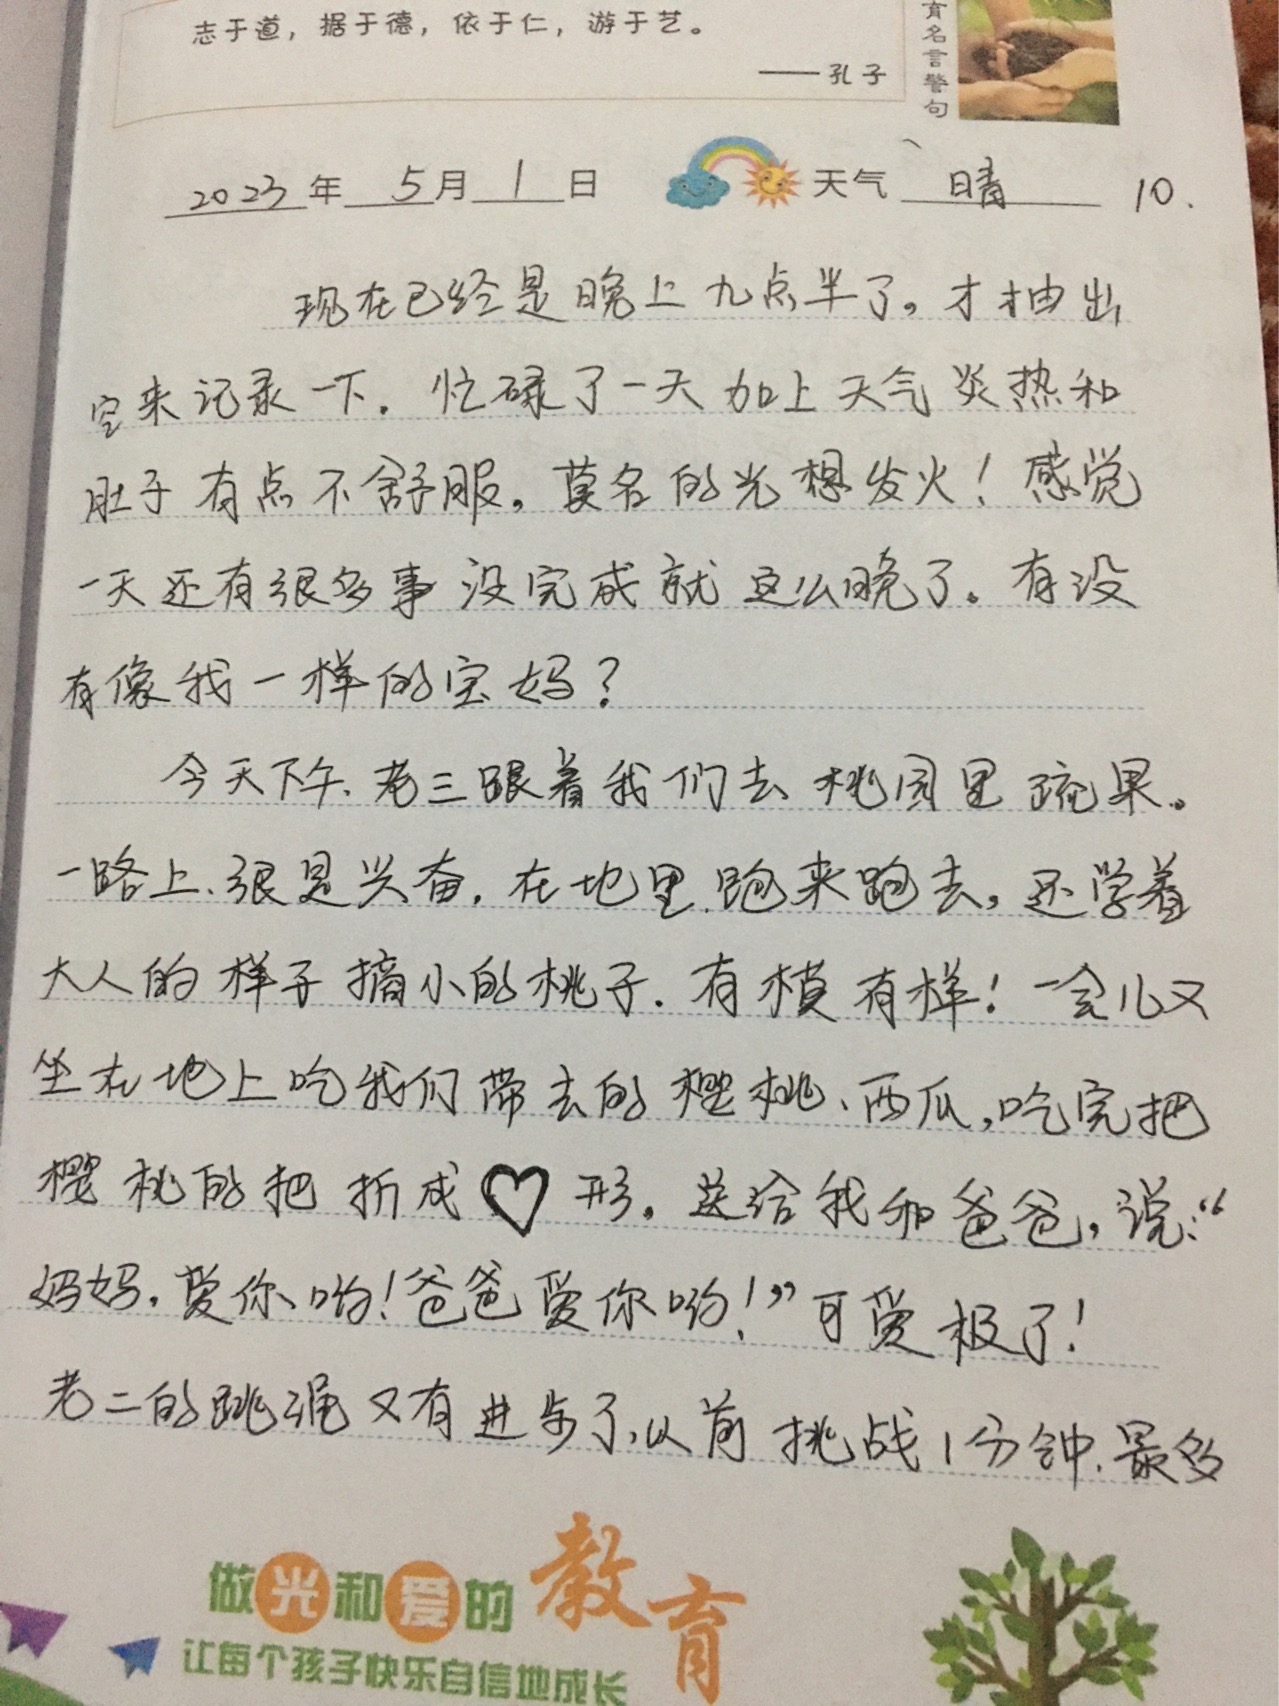 志于道，据于德，依于仁，游于艺。
——孔子
育名言警句
2023年 5月 1 日 天气 晴 10.
现在已经是晚上九点半了。才抽出
空来记录一下. 忙碌了一天加上天气炎热和
肚子有点不舒服。莫名的光想发火！感觉
一天还有很多事没完成就这么晚了。有没
有像我一样的宝妈？
今天下午、老三跟着我们去桃园里疏果。
一路上、很是兴奋，在地里跑来跑去，还学着
大人的样子摘小的桃子. 有模有样！一会儿又
坐在地上吃我们带去的樱桃、西瓜，吃完把
樱桃的把折成♡形。送给我和爸爸，说：“
妈妈，爱你哟！爸爸爱你哟！”可爱极了！
老二的跳绳又有进步了、以前挑战1分钟、最多
做光和爱的教育
让每个孩子快乐自信地成长